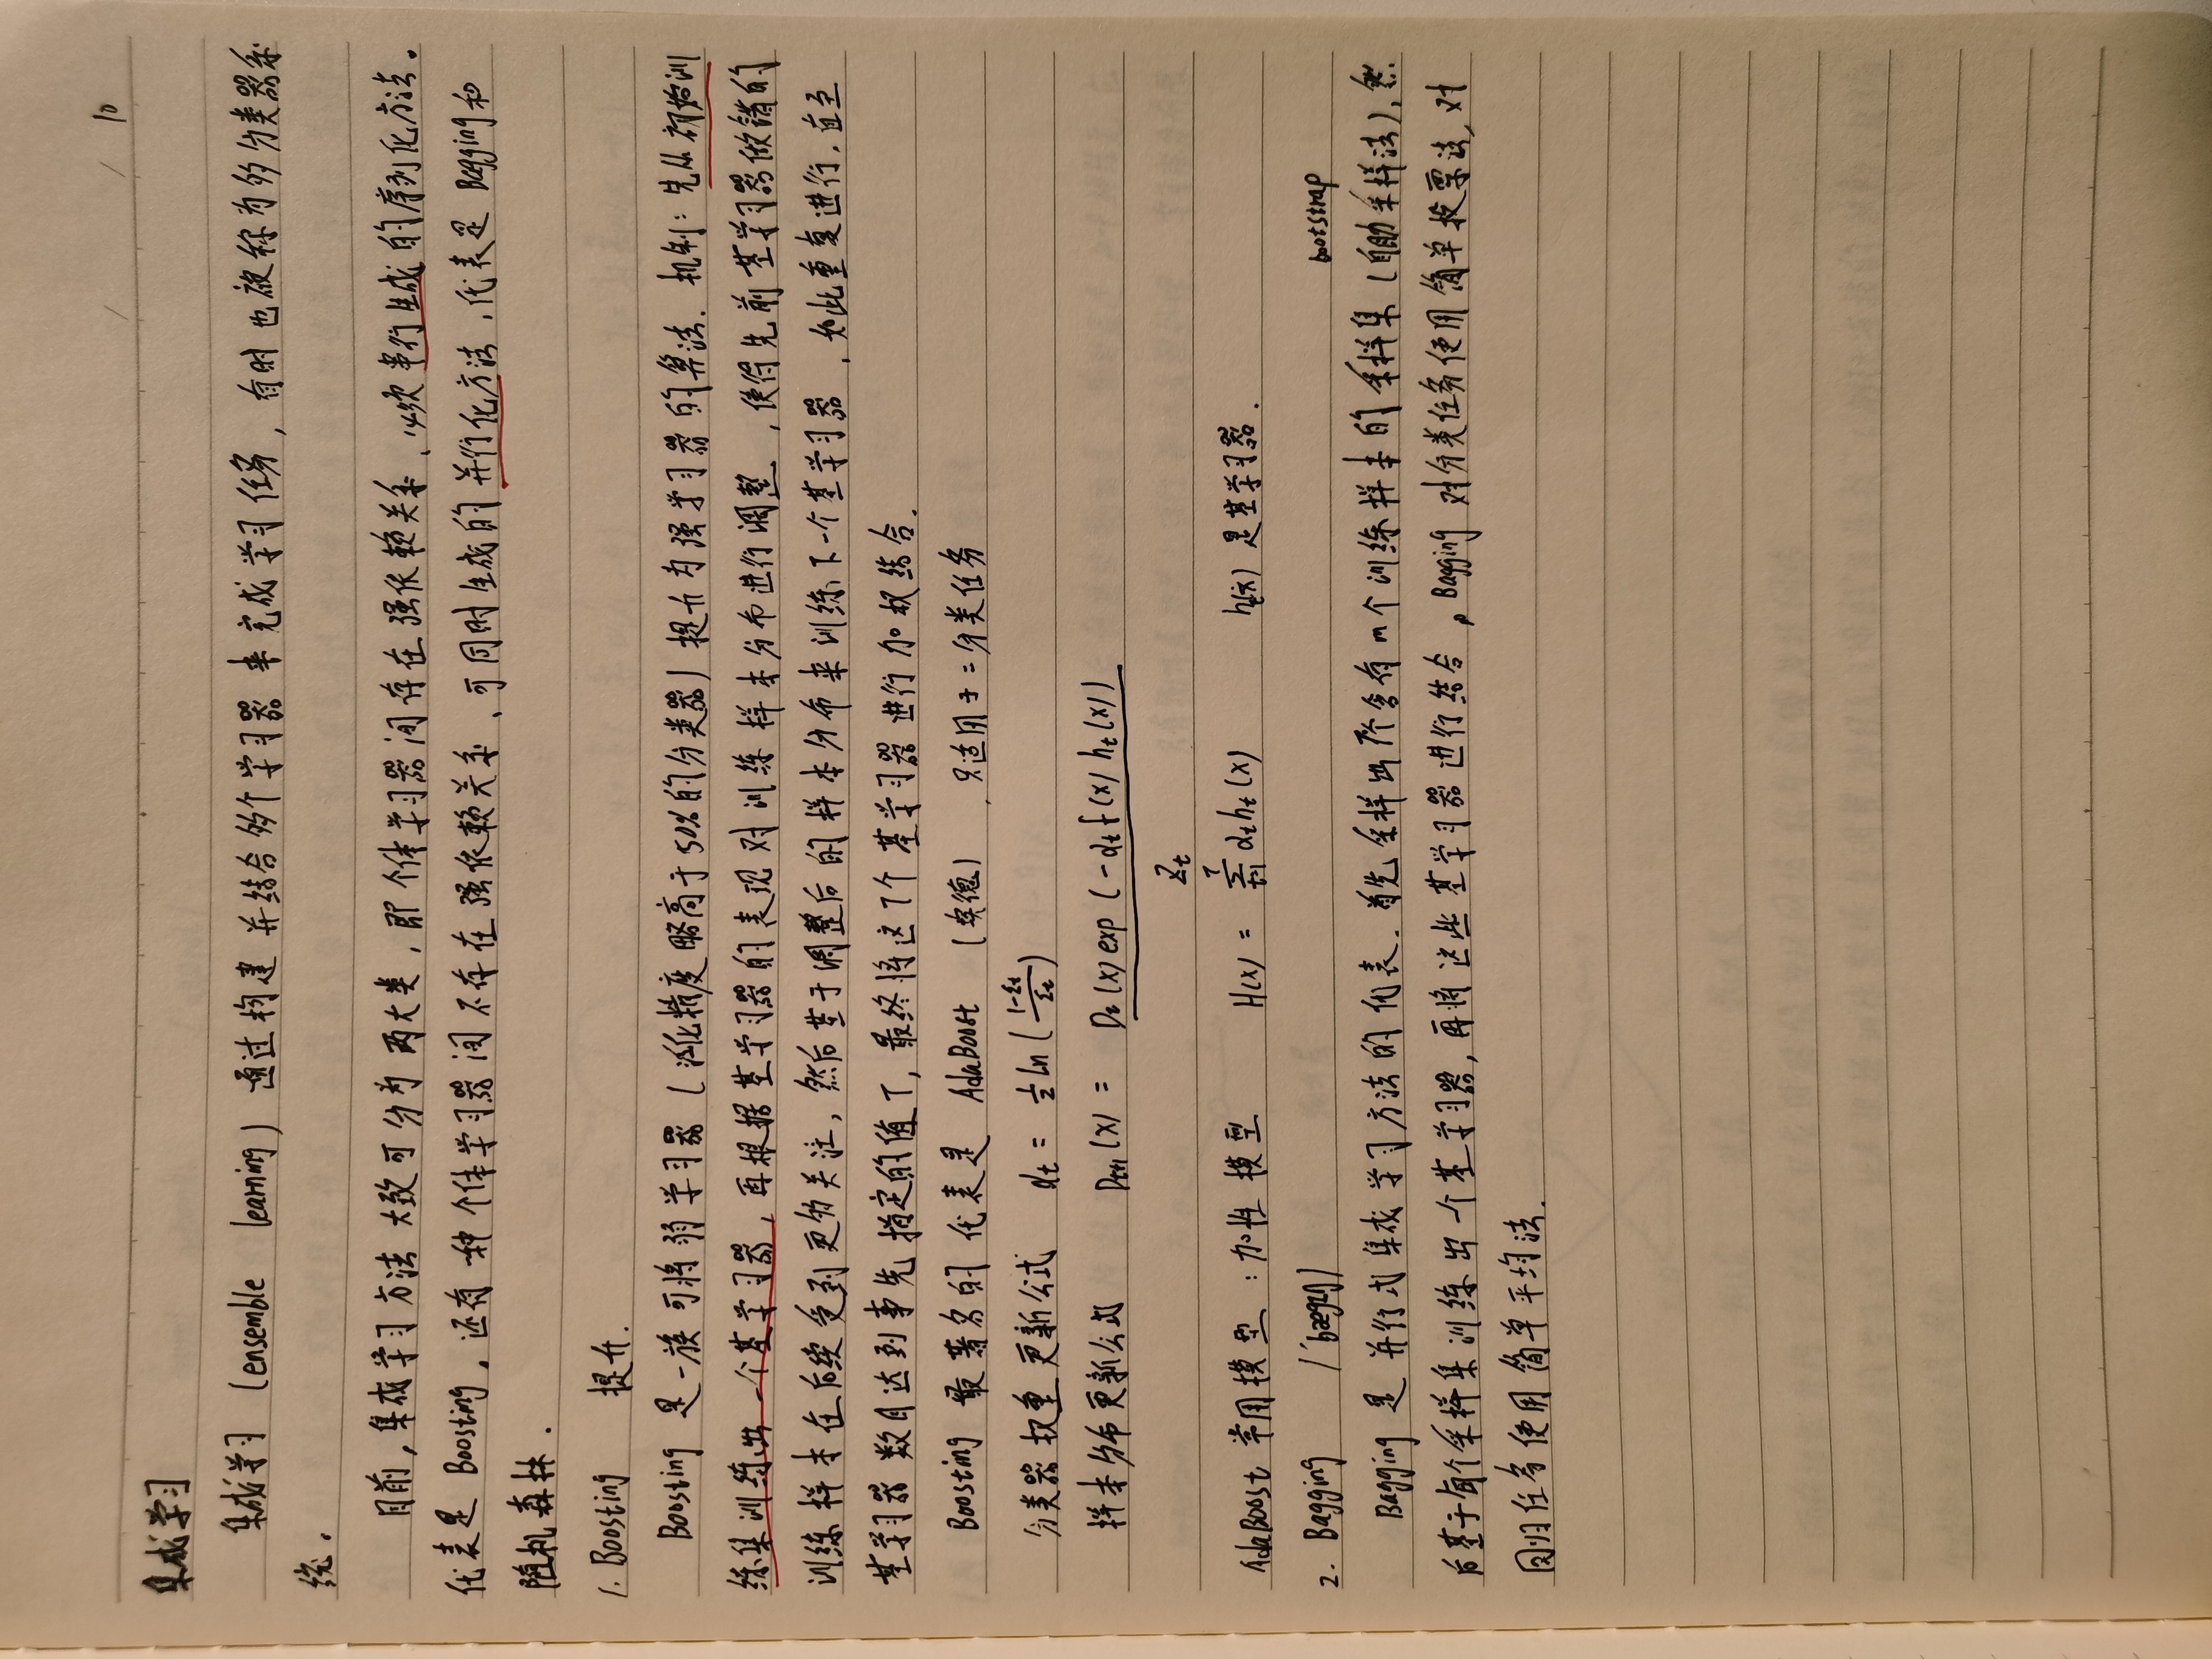 / / 10
集成学习
集成学习 (ensemble learning) 通过构建并结合多个学习器来完成学习任务, 有时也被称为多分类器系
统.
目前, 集成学习方法大致可分为两大类, 即个体学习器间存在强依赖关系、必须串行生成的序列化方法.
代表是 Boosting, 还有一种个体学习器间不存在强依赖关系、可同时生成的并行化方法, 代表是 Bagging和
随机森林.
1. Boosting 提升.
Boosting 是一族可将弱学习器 (泛化精度略高于50%的分类器) 提升为强学习器的算法. 机制: 先从初始训
练集训练出一个基学习器, 再根据基学习器的表现对训练样本分布进行调整, 使得先前基学习器做错的
训练样本在后续受到更多关注, 然后基于调整后的样本分布来训练下一个基学习器, 如此重复进行, 直至
基学习器数目达到事先指定的值T, 最终将这T个基学习器进行加权结合.
Boosting 最著名的代表是 AdaBoost (埃德), 只适用于二分类任务
分类器权重更新公式 αt = ½ ln (1-εt/εt)
样本分布更新公式 Dt+1(x) = Dt(x) exp (-αt f(x) ht(x))
Zt
AdaBoost 常用模型: 加性模型 H(x) = Σ(t=1→T) αt ht(x) ht(x) 是基学习器.
2. Bagging /ˈbægɪŋ/ bootstrap
Bagging 是并行式集成学习方法的代表. 首先采样出T个含有m个训练样本的采样集 (自助采样法), 然
后基于每个采样集训练出一个基学习器, 再将这些基学习器进行结合, Bagging 对分类任务使用简单投票法, 对
回归任务使用简单平均法.